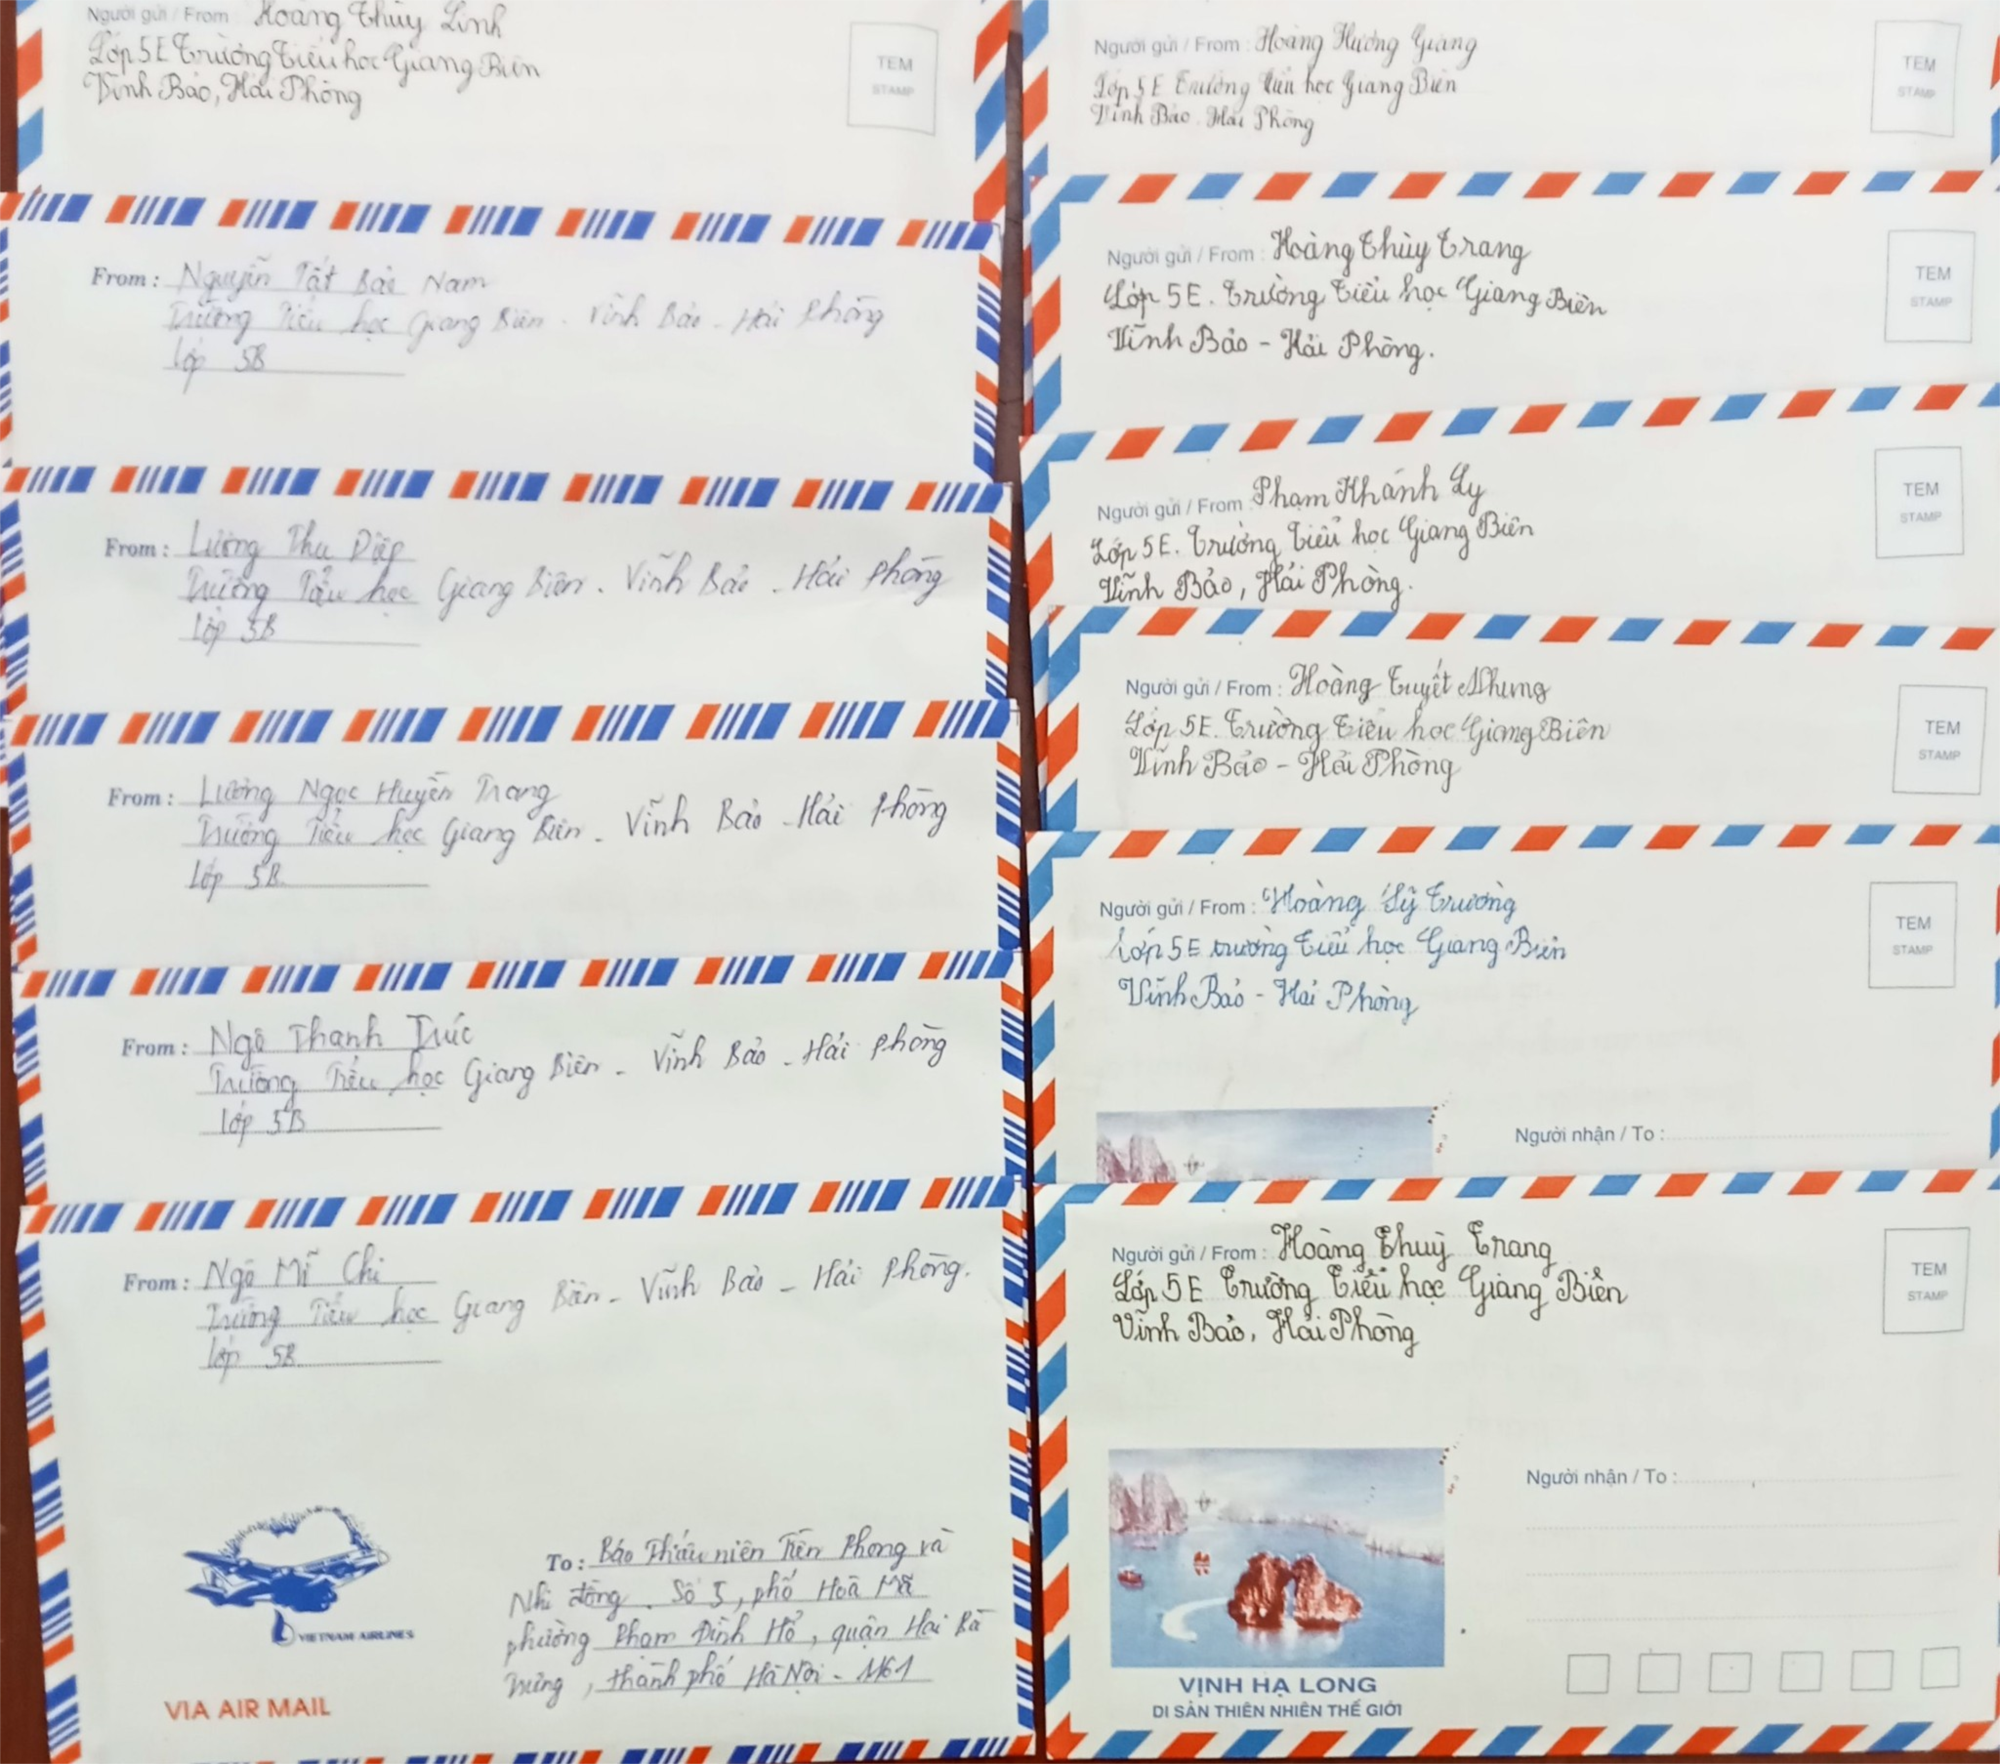 Người gửi / From Hoàng Thùy Linh
Lớp 5E Trường Tiểu học Giang Biên
Vĩnh Bảo, Hải Phòng
TEM
STAMP
From : Nguyễn Tất Bảo Nam
Trường Tiểu học Giang Biên - Vĩnh Bảo - Hải Phòng
Lớp 5B
From : Lương Thu Diệp
Trường Tiểu học Giang Biên - Vĩnh Bảo - Hải Phòng
Lớp 5B
From : Lương Ngọc Huyền Trang
Trường Tiểu học Giang Biên - Vĩnh Bảo - Hải Phòng
Lớp 5B
From : Ngô Thanh Trúc
Trường Tiểu học Giang Biên - Vĩnh Bảo - Hải Phòng
Lớp 5B
From : Ngô Mĩ Chi
Trường Tiểu học Giang Biên - Vĩnh Bảo - Hải Phòng.
Lớp 5B
VIETNAM AIRLINES
VIA AIR MAIL
To : Báo Thiếu niên Tiền Phong và
Nhi đồng. Số 5, phố Hoà Mã
phường Phạm Đình Hổ, quận Hai Bà
Trưng, thành phố Hà Nội - 1161
Người gửi / From : Hoàng Hương Giang
Lớp 5E Trường tiểu học Giang Biên
Vĩnh Bảo. Hải Phòng
TEM
STAMP
Người gửi / From : Hoàng Thùy Trang
Lớp 5E. Trường Tiểu học Giang Biên
Vĩnh Bảo - Hải Phòng.
TEM
STAMP
Người gửi / From : Phạm Khánh Ly
Lớp 5E. Trường Tiểu học Giang Biên
Vĩnh Bảo, Hải Phòng.
TEM
STAMP
Người gửi / From : Hoàng Tuyết Nhung
Lớp 5E. Trường Tiểu học Giang Biên
Vĩnh Bảo - Hải Phòng
TEM
STAMP
Người gửi / From : Hoàng Sỹ Trường
Lớp 5E trường Tiểu học Giang Biên
Vĩnh Bảo - Hải Phòng
TEM
STAMP
Người nhận / To :
Người gửi / From : Hoàng Thuỳ Trang
Lớp 5E Trường Tiểu học Giang Biên
Vĩnh Bảo, Hải Phòng
TEM
STAMP
Người nhận / To :
VỊNH HẠ LONG
DI SẢN THIÊN NHIÊN THẾ GIỚI